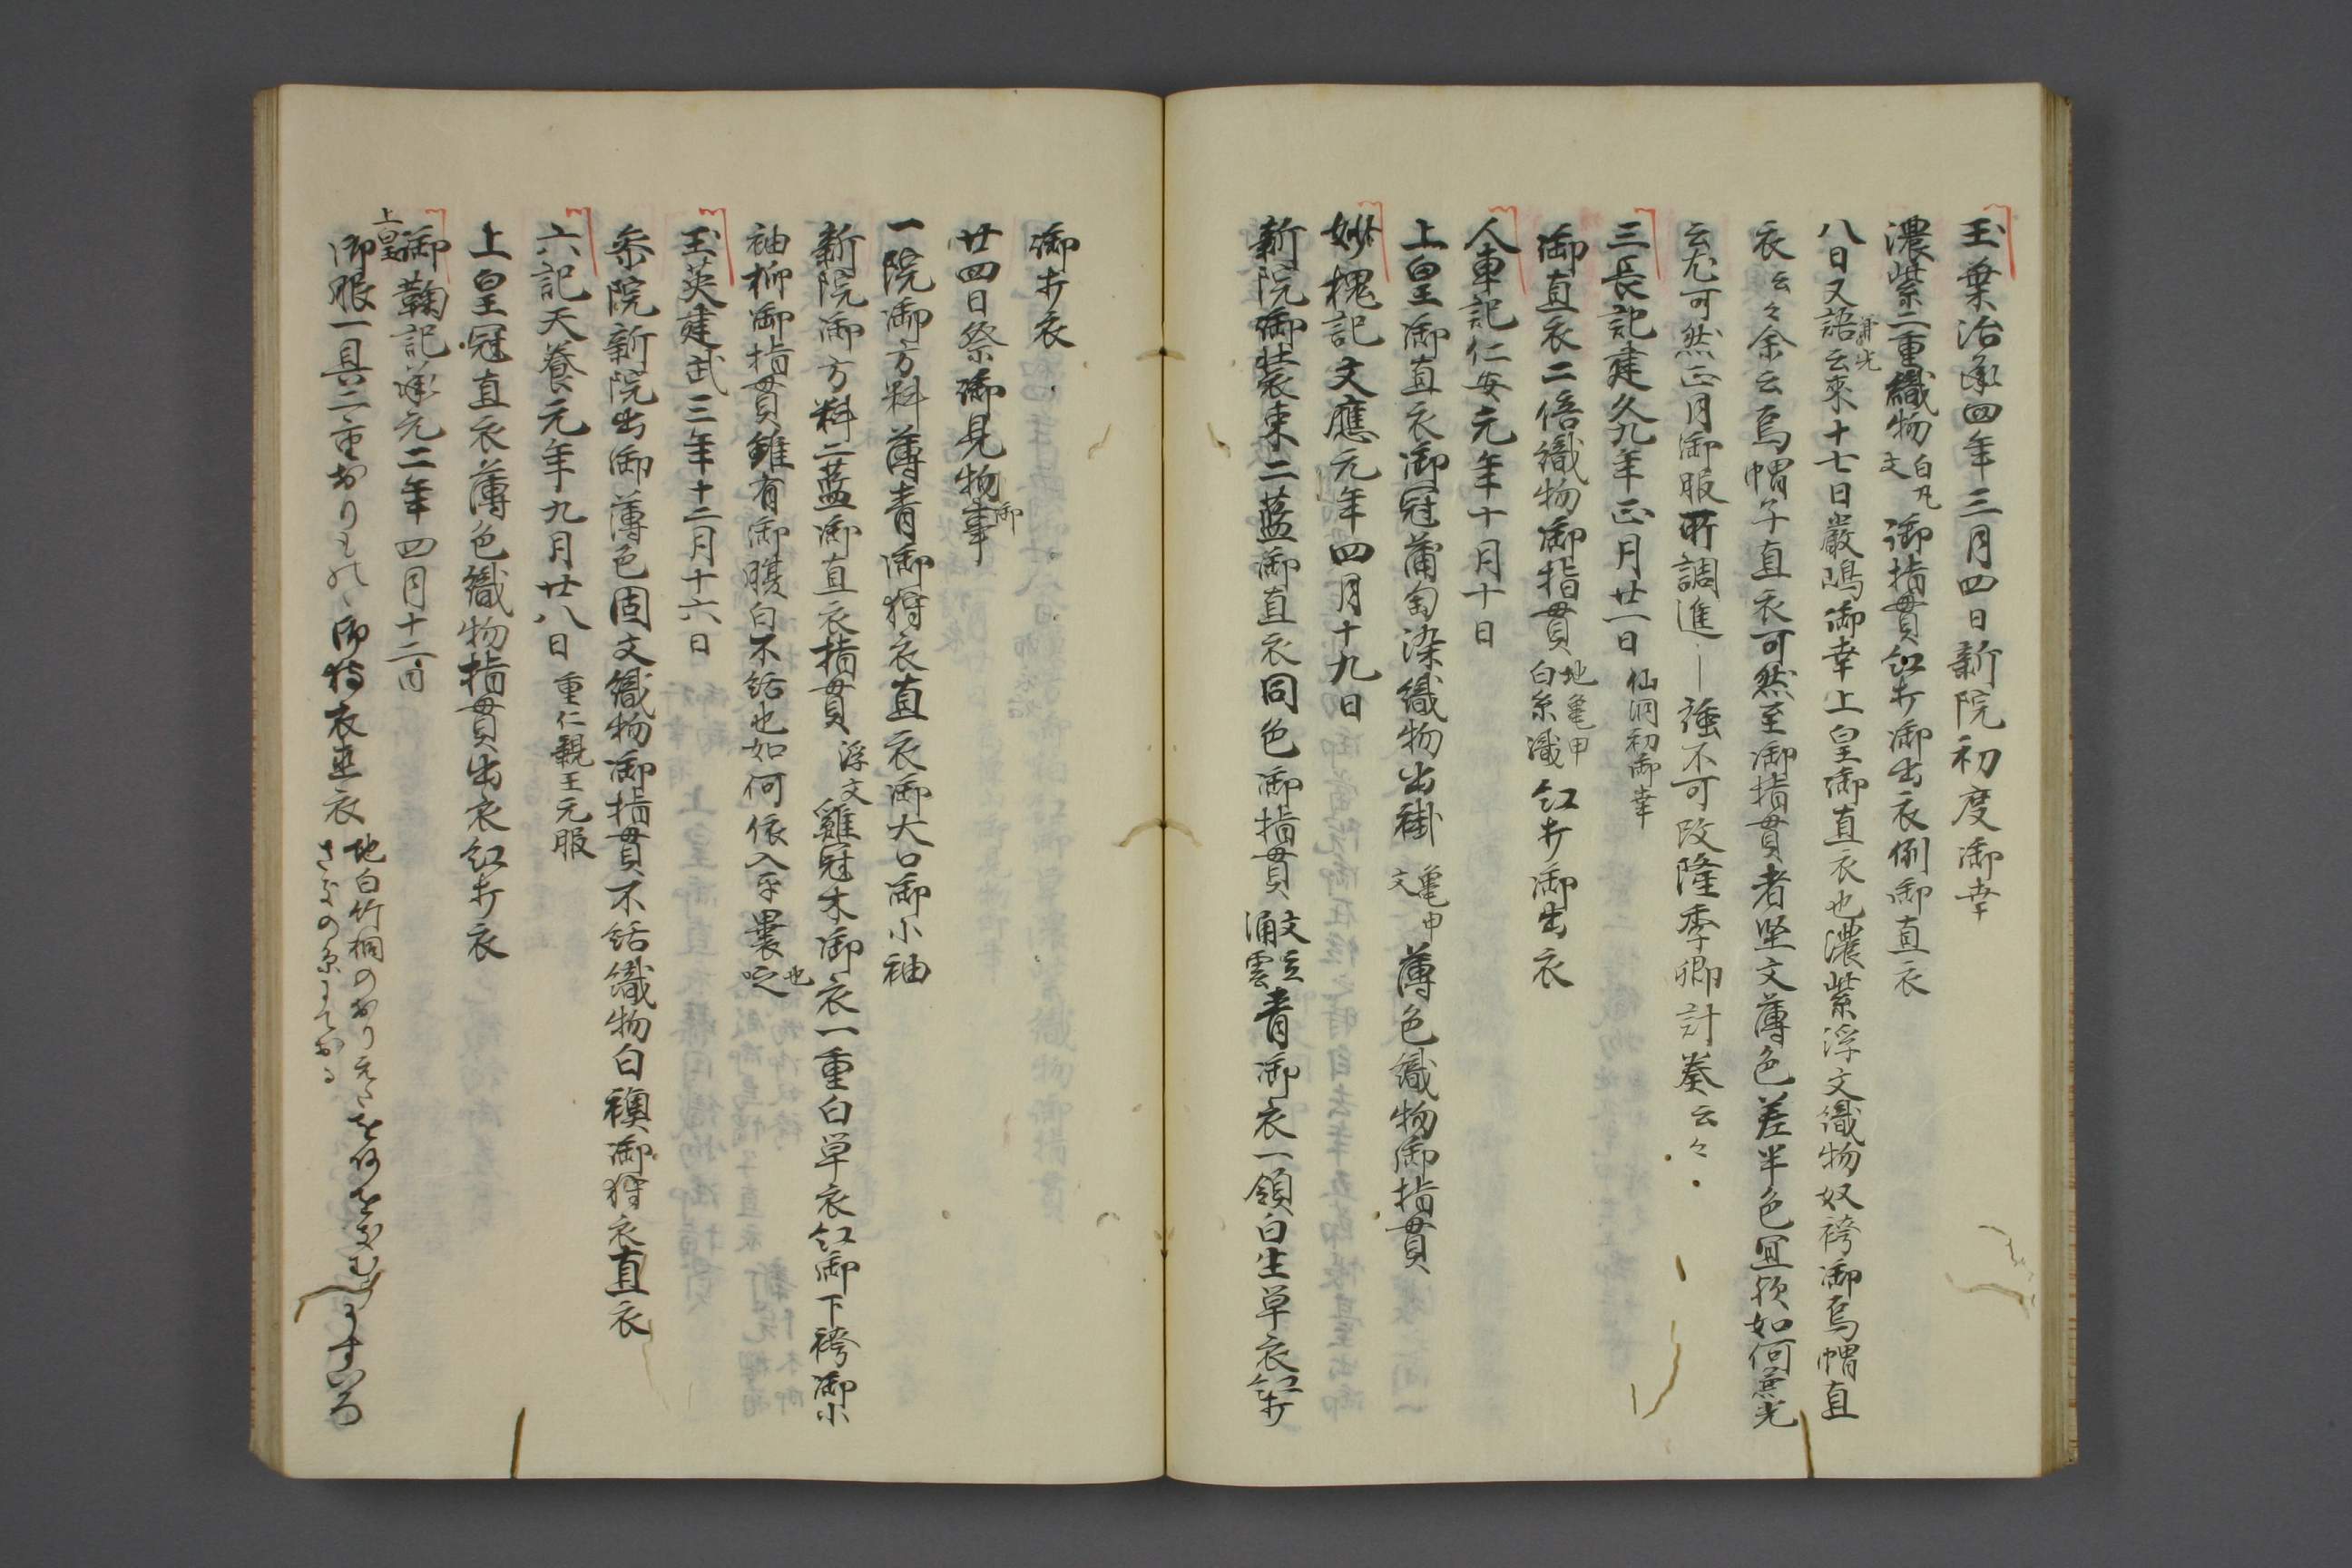 玉葉治承四年三月四日新院初度御幸
濃紫二重織物白丸文御指貫紅打御出衣例御直衣
八日又語云來十七日嚴嶋御幸上皇御直衣也濃紫浮文織物奴袴御烏帽直
兼光
衣云々余云烏帽子直衣可然至御指貫者堅文薄色若半色宜歟如何兼光
云尤可然正月御服所調進―強不可改隆季卿計奏云々
三長記建久九年正月廿一日仙洞初御幸
御直衣二倍織物御指貫地亀甲白糸織紅打御出衣
人車記仁安元年十月十日
上皇御直衣御冠蒲萄染織物出褂亀甲文薄色織物御指貫
妙槐記文應元年四月十九日
新院御裝束二藍御直衣同色御指貫文立涌雲青御衣一領白生單衣紅打
御打衣
廿四日祭御見物御事
一院御方料薄青御狩衣直衣御大口御小袖
新院御方料二藍御直衣指貫浮文雞冠木御衣一重白單衣紅御下袴御小
袖柳御指貫雖有御腹白不結也如何依入平裹也
玉英建武三年十二月十六日
参院新院出御薄色固文織物御指貫不結織物白襖御狩衣直衣
六記天養元年九月廿八日重仁親王元服
上皇冠直衣薄色織物指貫出衣紅打衣
御鞠記承元二年四月十二日
上皇
御服一具二重おりもの御狩衣直衣地白竹桐のおり